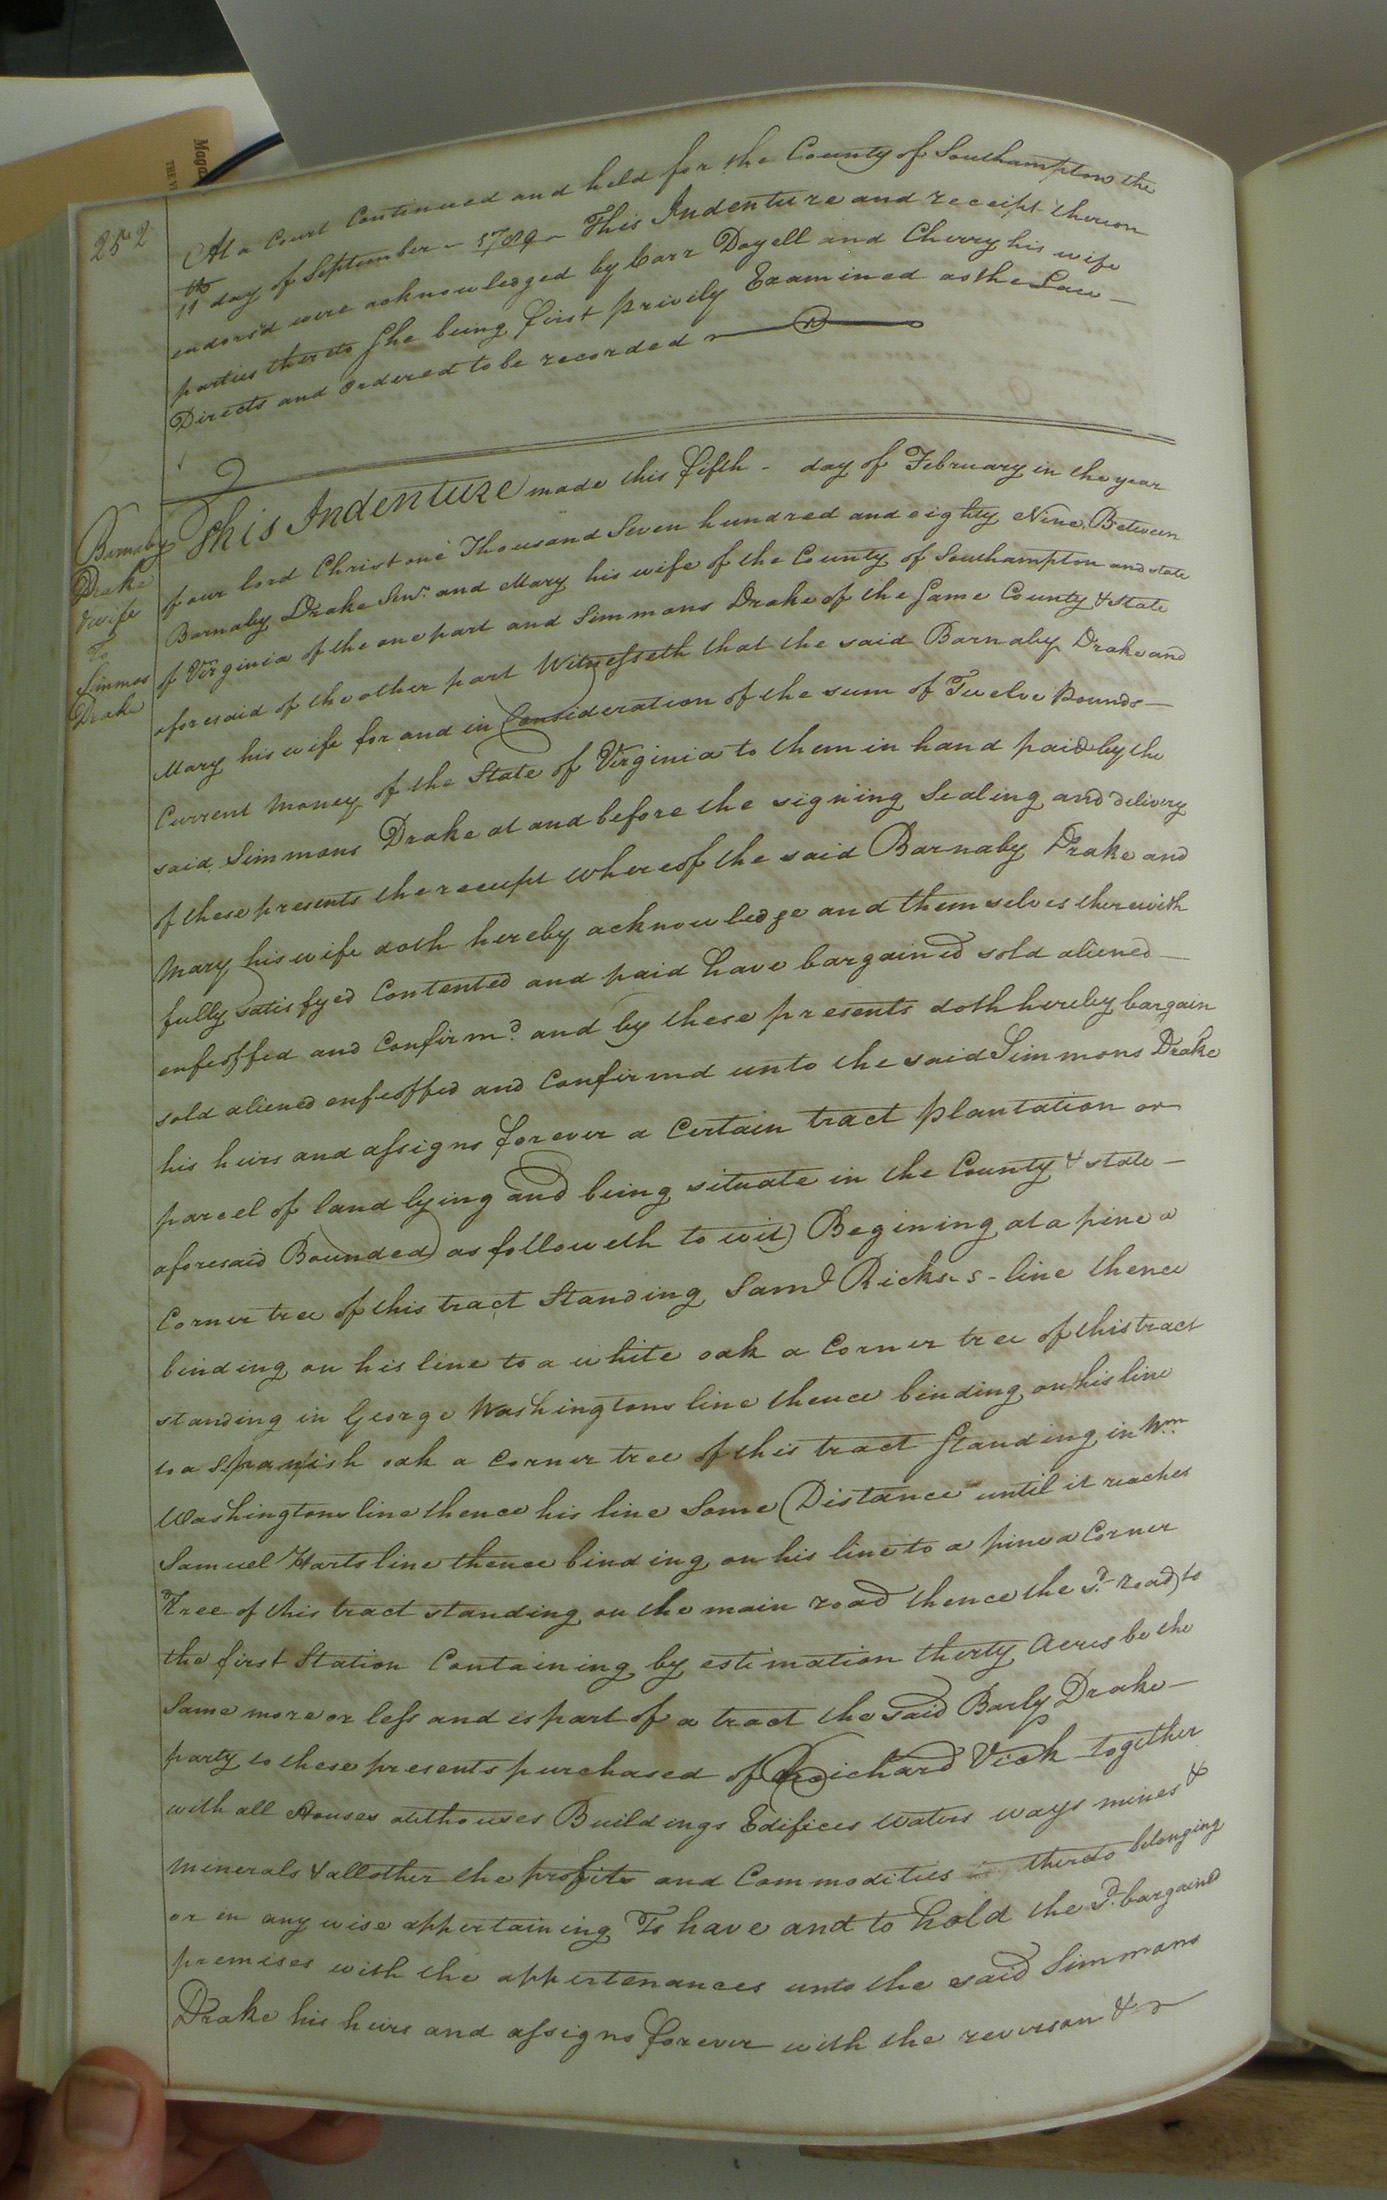 252
At a Court Continued and held for the County of Southampton the
11 day of September - 1789 - This Indenture and receipt thereon
endors'd were acknowledged by Carr Doyell and Cherry his wife
parties thereto She being first privily Examined as the Law -
Directs and Ordered to be recorded
Barnaby
Drake
& wife
To
Simmos
Drake
This Indenture made this fifth - day of February in the year
of our lord Christ one Thousand Seven hundred and eighty Nine Between
Barnaby Drake Senr. and Mary his wife of the County of Southampton and state
of Virginia of the one part and Simmons Drake of the Same County & State
aforesaid of the other part Witnesseth that the said Barnaby Drake and
Mary his wife for and in Consideration of the sum of Twelve Pounds -
Current Money of the State of Virginia to them in hand paid by the
said Simmons Drake at and before the signing Sealing and delivery
of these presents the receipt whereof the said Barnaby Drake and
Mary his wife doth hereby acknowledge and themselves therewith
fully satisfyed Contented and paid have bargained sold aliened -
enfeoffed and Confirmd. and by these presents doth hereby bargain
sold aliened enfeoffed and Confirmd unto the said Simmons Drake
his heirs and assigns forever a Certain tract plantation or
parcel of land lying and being situate in the County & state -
aforesaid Bounded as followeth to wit) Begining at a pine a
Corner tree of this tract Standing Saml Ricks-s - line thence
binding on his line to a white oak a Corner tree of this tract
standing in George Washingtons line thence binding on his line
to a Spanish oak a Corner tree of this tract Standing in Wm
Washingtons line thence his line Some Distance until it reaches
Samuel Harts line thence binding on his line to a pine a Corner
Tree of this tract standing on the main road thence the sd. road to
the first Station Containing by estimation therty Acres be the
Same more or less and is part of a tract the said Barby Drake -
party to these presents purchased of Richard Vick together
with all Houses outhouses Buildings Edifices waters ways mines &
Minerals & all other the profits and Commodities thereto belonging
or in any wise appertaining To have and to hold the sd. bargained
premises with the appertenances unto the said Simmons
Drake his heirs and assigns forever with the reverson &